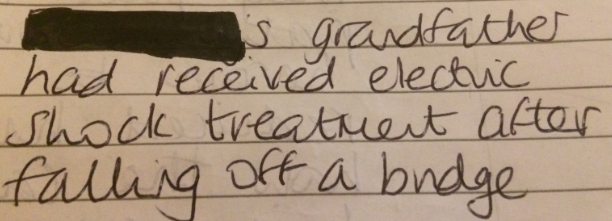 's grandfather
had received electric
shock treatment after
falling off a bridge